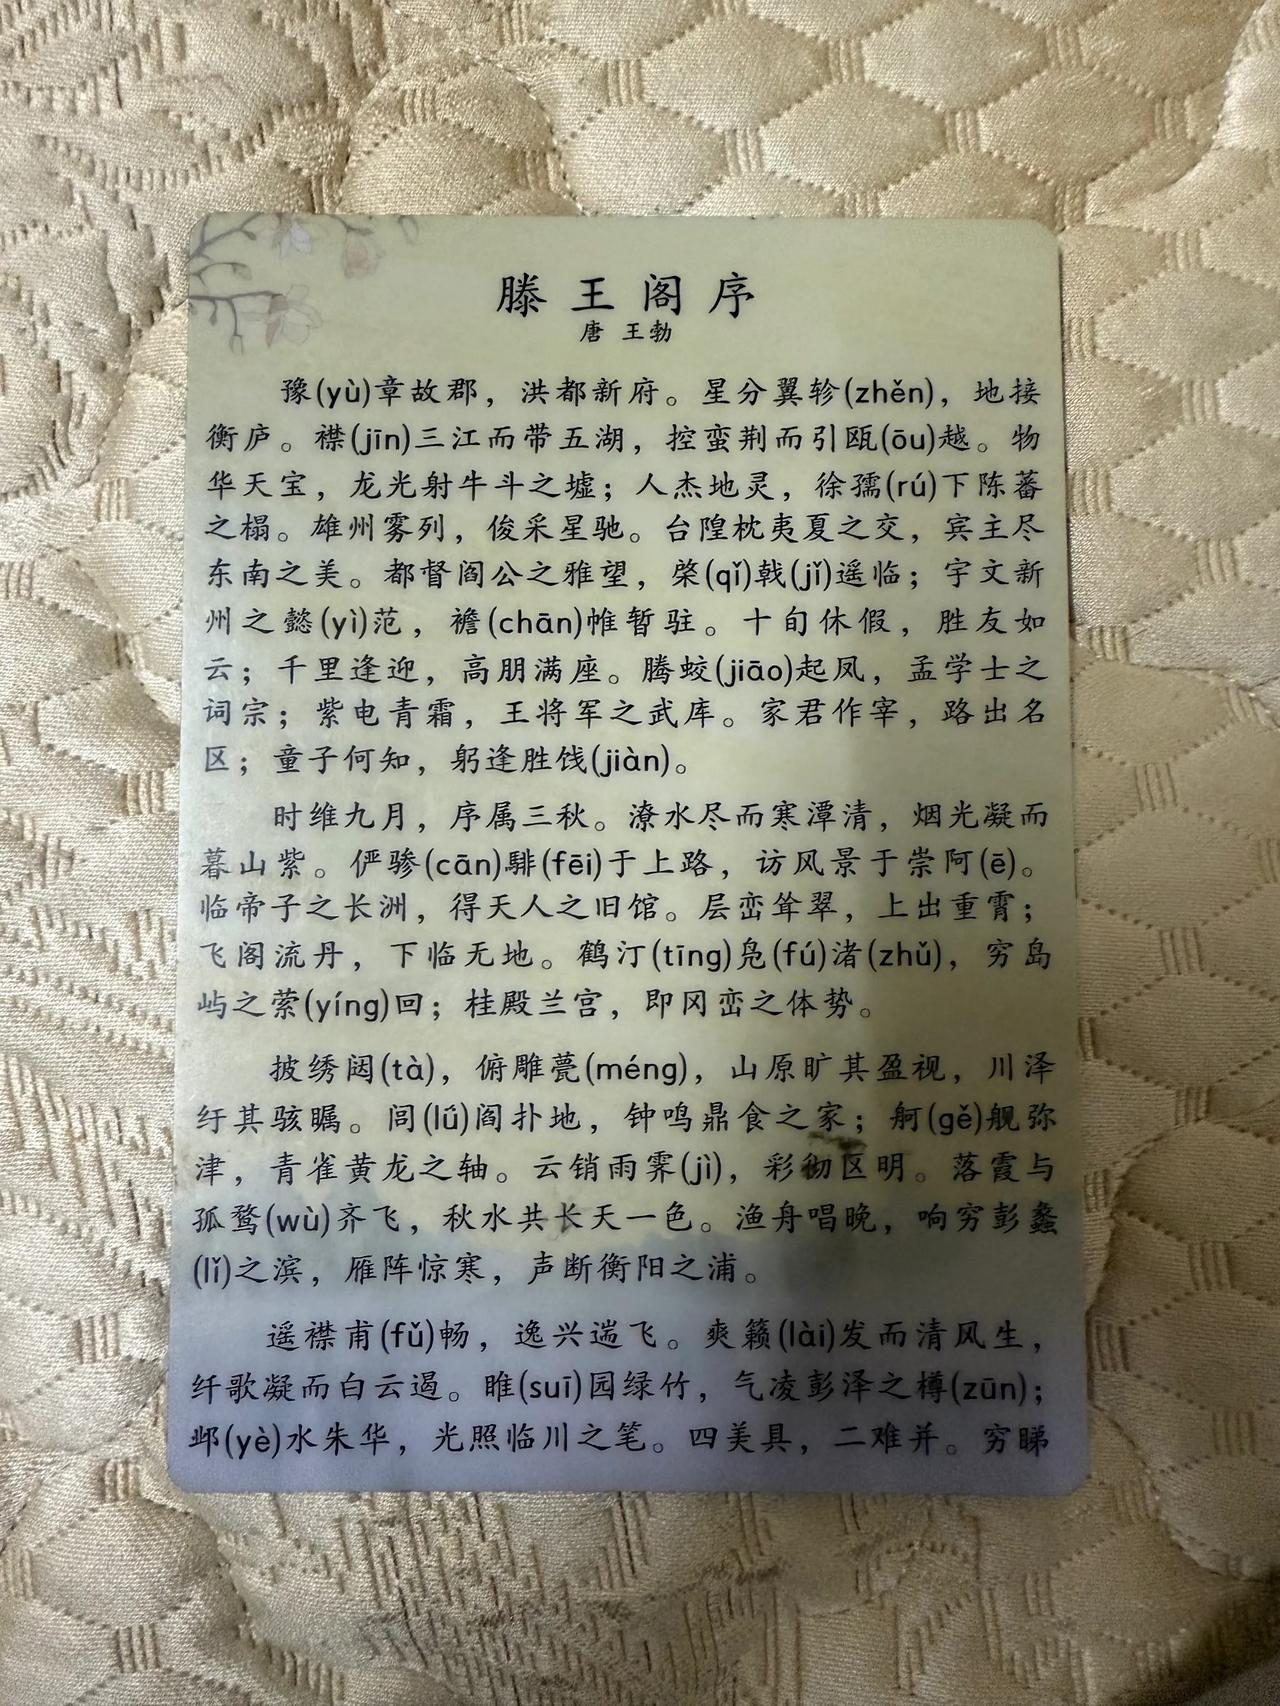 滕王阁序
唐 王勃
豫(yù)章故郡，洪都新府。星分翼轸(zhěn)，地接
衡庐。襟(jīn)三江而带五湖，控蛮荆而引瓯(ōu)越。物
华天宝，龙光射牛斗之墟；人杰地灵，徐孺(rú)下陈蕃
之榻。雄州雾列，俊采星驰。台隍枕夷夏之交，宾主尽
东南之美。都督阎公之雅望，棨(qǐ)戟(jǐ)遥临；宇文新
州之懿(yì)范，襜(chān)帷暂驻。十旬休假，胜友如
云；千里逢迎，高朋满座。腾蛟(jiāo)起凤，孟学士之
词宗；紫电青霜，王将军之武库。家君作宰，路出名
区；童子何知，躬逢胜饯(jiàn)。
时维九月，序属三秋。潦水尽而寒潭清，烟光凝而
暮山紫。俨骖(cān)騑(fēi)于上路，访风景于崇阿(ē)。
临帝子之长洲，得天人之旧馆。层峦耸翠，上出重霄；
飞阁流丹，下临无地。鹤汀(tīng)凫(fú)渚(zhǔ)，穷岛
屿之萦(yíng)回；桂殿兰宫，即冈峦之体势。
披绣闼(tà)，俯雕甍(méng)，山原旷其盈视，川泽
纡其骇瞩。闾(lǘ)阎扑地，钟鸣鼎食之家；舸(gě)舰弥
津，青雀黄龙之轴。云销雨霁(jì)，彩彻区明。落霞与
孤鹜(wù)齐飞，秋水共长天一色。渔舟唱晚，响穷彭蠡
(lǐ)之滨，雁阵惊寒，声断衡阳之浦。
遥襟甫(fǔ)畅，逸兴遄飞。爽籁(lài)发而清风生，
纤歌凝而白云遏。睢(suī)园绿竹，气凌彭泽之樽(zūn)；
邺(yè)水朱华，光照临川之笔。四美具，二难并。穷睇